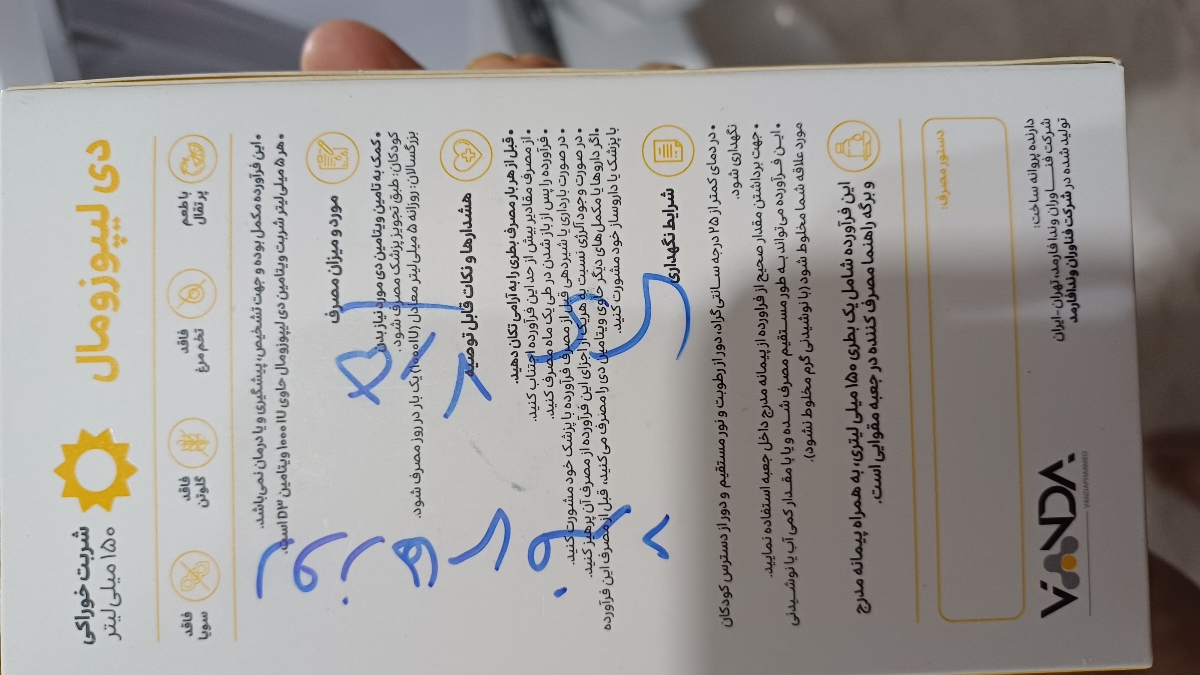 دی لیپوزومال
شربت خوراکی
۱۵۰ میلی لیتر
با طعم پرتقال
فاقد تخم مرغ
فاقد گلوتن
فاقد سویا
• این فرآورده مکمل بوده و جهت تشخیص، پیشگیری و یا درمان نمی‌باشد.
• هر ۵ میلی لیتر شربت ویتامین دی لیپوزومال حاوی ۱۰۰۰ IU ویتامین D3 است.
مورد و میزان مصرف
• کمک به تامین ویتامین دی مورد نیاز بدن
کودکان: طبق تجویز پزشک مصرف شود.
بزرگسالان: روزانه ۵ میلی لیتر معادل (۱۰۰۰ IU) یک بار در روز مصرف شود.
هشدارها و نکات قابل توصیه
• قبل از هر بار مصرف بطری را به آرامی تکان دهید.
• از مصرف مقادیر بیش از حد این فرآورده اجتناب کنید.
• فرآورده را پس از باز شدن در طی یک ماه مصرف کنید.
• در صورت بارداری یا شیردهی قبل از مصرف فرآورده با پزشک خود مشورت کنید.
• در صورت وجود آلرژی نسبت به هر یک از اجزای این فرآورده از مصرف آن پرهیز کنید.
• اگر داروها یا مکمل های دیگر حاوی ویتامین دی را مصرف می‌کنید، قبل از مصرف این فرآورده
با پزشک یا داروساز خود مشورت کنید.
شرایط نگهداری
• در دمای کمتر از ۲۵ درجه سانتی گراد، دور از رطوبت و نور مستقیم و دور از دسترس کودکان
نگهداری شود.
• جهت برداشتن مقدار صحیح از فراورده از پیمانه مدرج داخل جعبه استفاده نمایید.
• این فرآورده می‌تواند به طور مستقیم مصرف شده و یا با مقدار کمی آب یا نوشیدنی
مورد علاقه شما مخلوط شود (با نوشیدنی گرم مخلوط نشود).
این فرآورده شامل یک بطری ۱۵۰ میلی لیتری، به همراه پیمانه مدرج
و برگه راهنما مصرف کننده در جعبه مقوایی است.
دستور مصرف:
دارنده پروانه ساخت:
شرکت فناوران وندا فارمد، تهران - ایران
تولید شده در شرکت فناوران وندا فارمد
VANDA
VANDAPHARMED